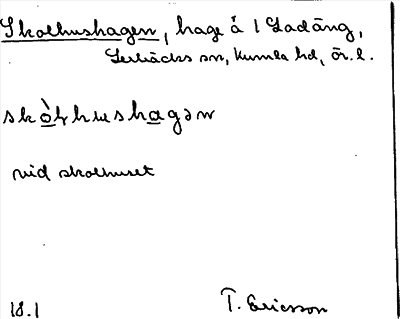 Skolhushagen, hage å 1 Ladäng,
Lerbäcks sn, Kumla hd, ör. l.
skò̠ɫhusha̠gən
vid skolhuset
18.1 T. Ericsson